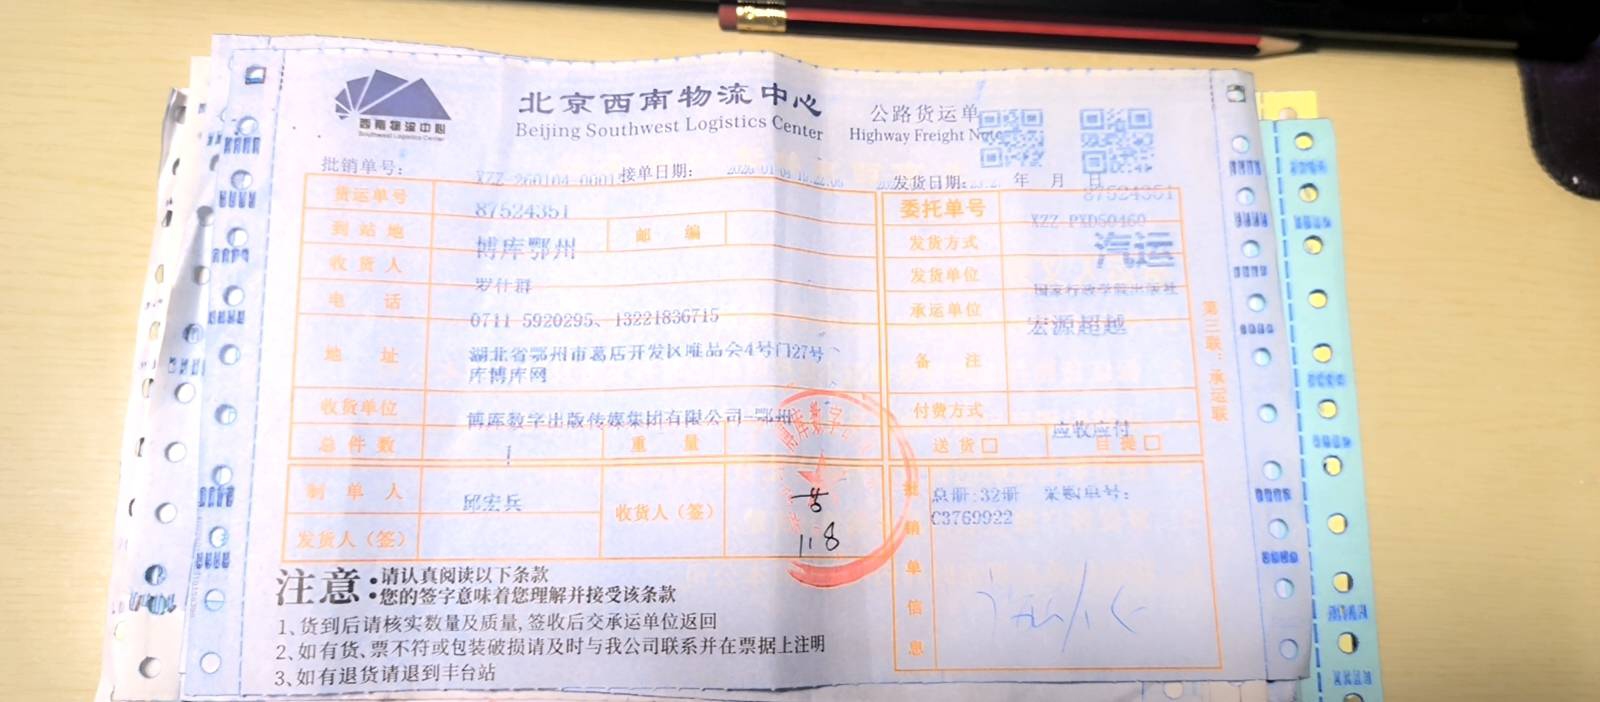 西南物流中心
Southwest Logistics Center
北京西南物流中心
Beijing Southwest Logistics Center
公路货运单
Highway Freight Note
批销单号: XZZ-260104-0001
接单日期: 2026-01-04
发货日期: 年 月 日
货运单号 87524351
委托单号 87524351
XZZ-PXD50460
到站地 博库鄂州 邮编
发货方式 汽运
收货人 罗仕群
发货单位 国家行政学院出版社
电话 0711-5920295、13221836715
承运单位 宏源超越
地址 湖北省鄂州市葛店开发区唯品会4号门27号
库博库网
备注
收货单位 博库数字出版传媒集团有限公司-鄂州
付费方式 应收应付
总件数 1 重量
送货□ 自提□
制单人 邱宏兵
收货人（签）
118
发货人（签）
批销单信息
总册:32册 采购单号:
C3769922
第三联：承运联
注意:
请认真阅读以下条款
您的签字意味着您理解并接受该条款
1、货到后请核实数量及质量,签收后交承运单位返回
2、如有货、票不符或包装破损请及时与我公司联系并在票据上注明
3、如有退货请退到丰台站